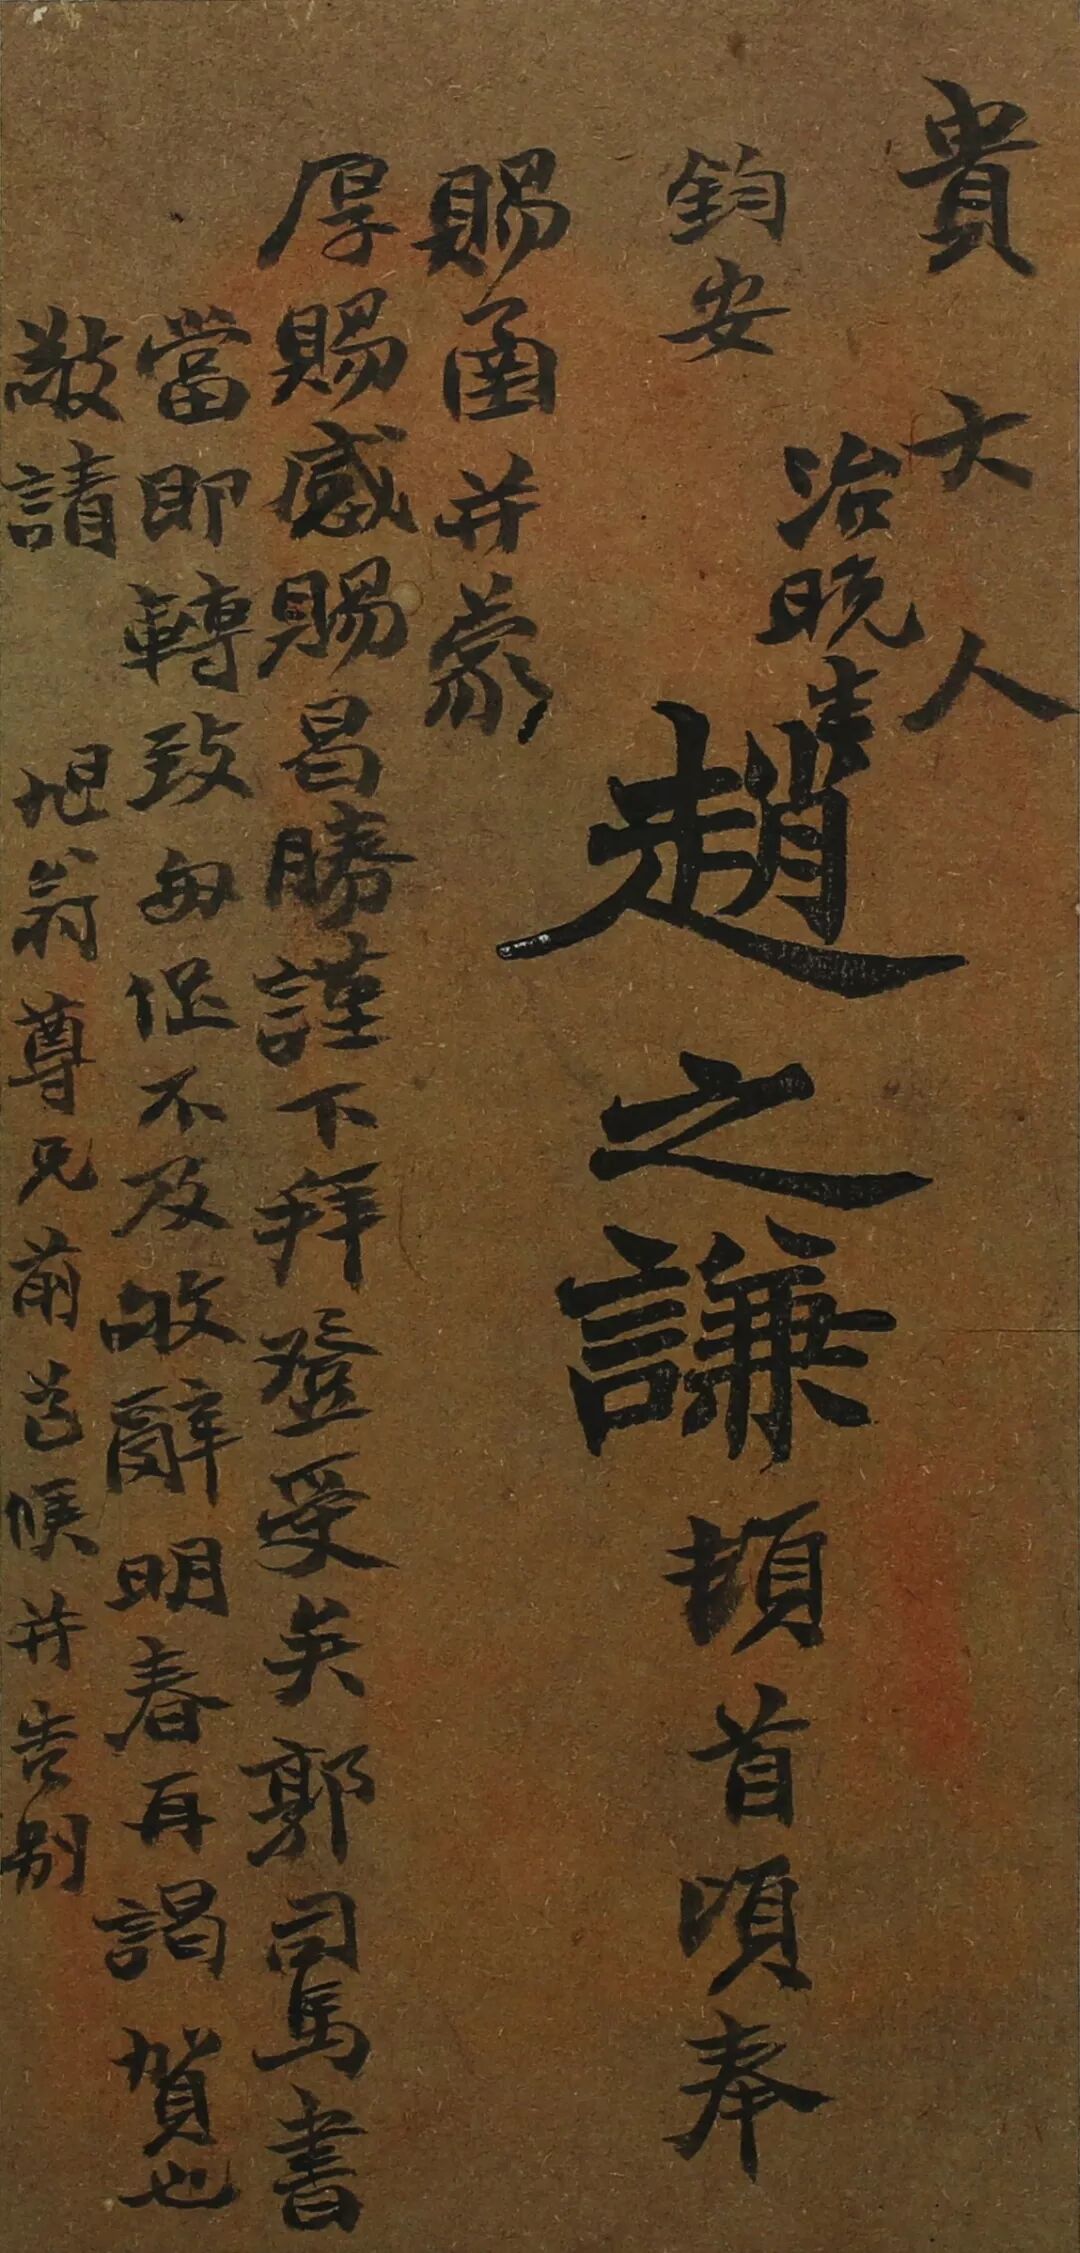 貴大人
鈞安
治晚生
趙之謙頓首頃奉
賜函并蒙
厚賜感賜曷勝謹下拜登受矣郭司馬書
當即轉致匆促不及敬辭明春再謁賀也
敬請
旭翁尊兄前道候并告别